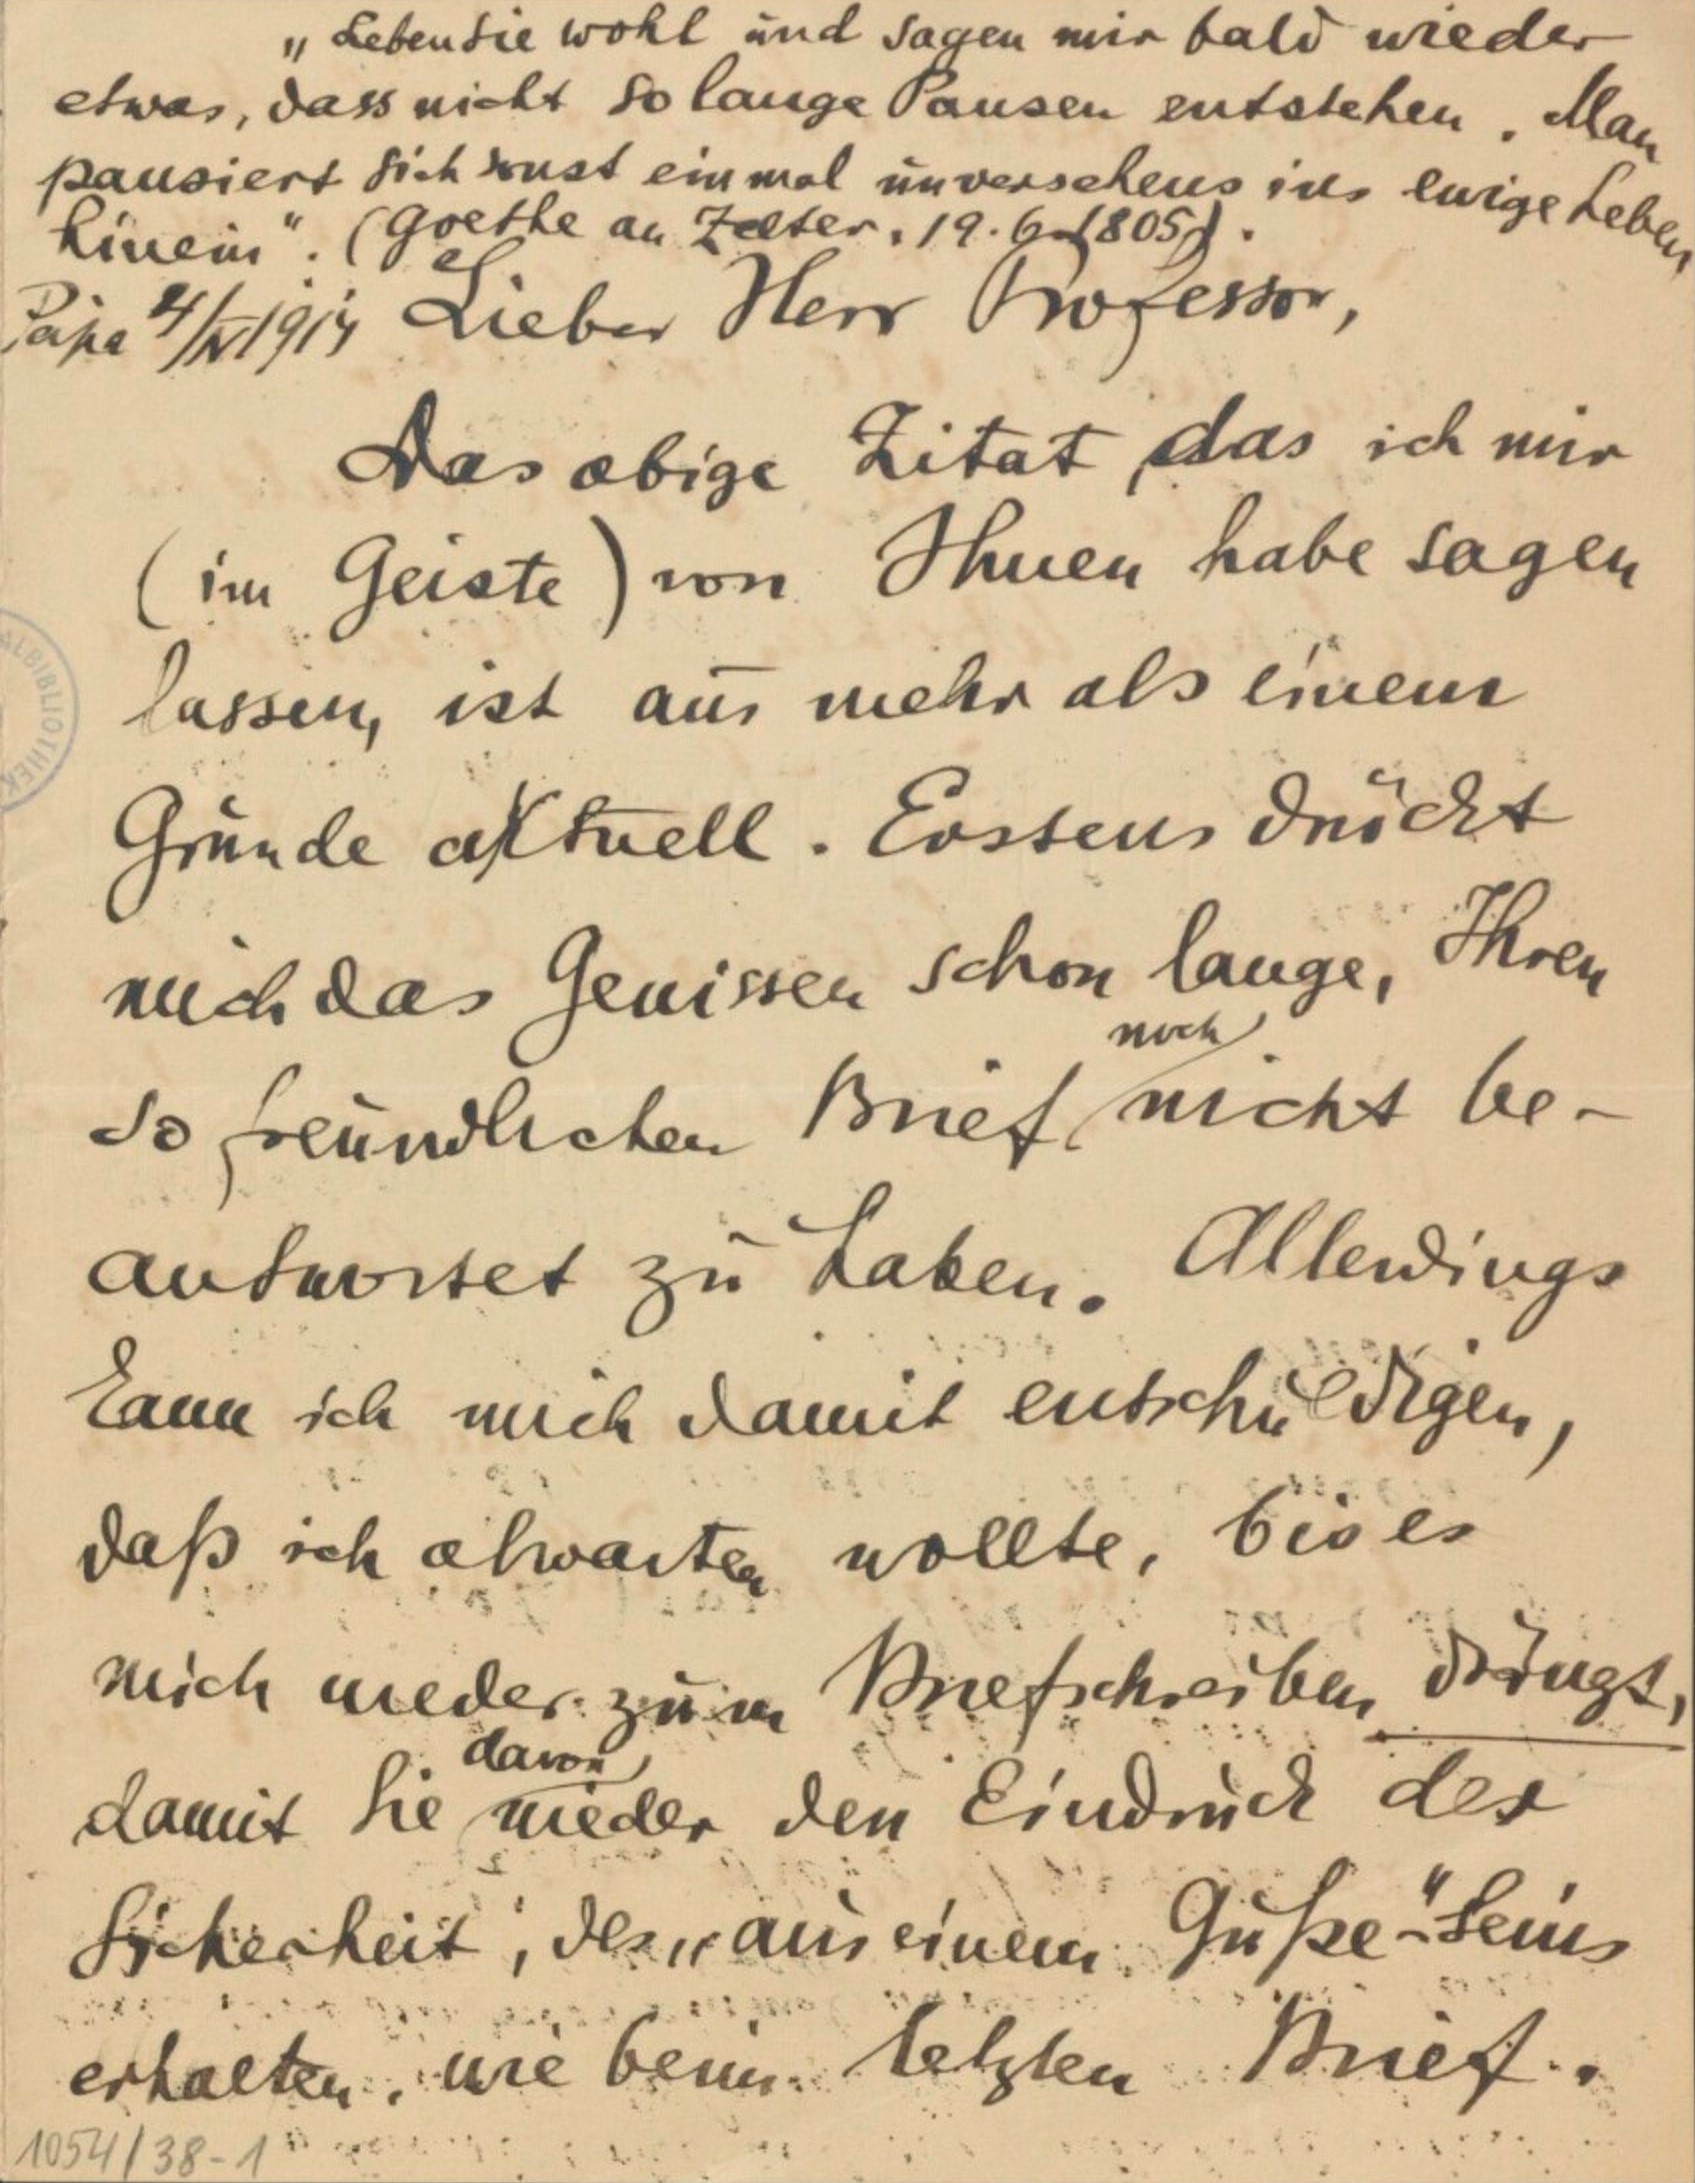 „Leben Sie wohl und sagen mir bald wieder
etwas, dass nicht so lange Pausen entstehen. Man
pausiert sich sonst einmal unversehens ins ewige Leben
hinein“. (Goethe an Zelter, 19.6.1805).
Pápa 4/IV 1914 Lieber Herr Professor,
Das obige Zitat, das ich mir
(im Geiste) von Ihnen habe sagen
lassen, ist aus mehr als einem
Grunde aktuell. Erstens drückt
mich das Gewissen schon lange, Ihren
noch
so freundlichen Brief nicht be-
antwortet zu haben. Allerdings
kann ich mich damit entschuldigen,
daß ich abwarten wollte, bis es
mich wieder zum Briefschreiben drängt,
davon
damit Sie wieder den Eindruck der
Sicherheit, des „aus einem Guße“-Seins
erhalten, wie beim letzten Brief.
1054/38-1